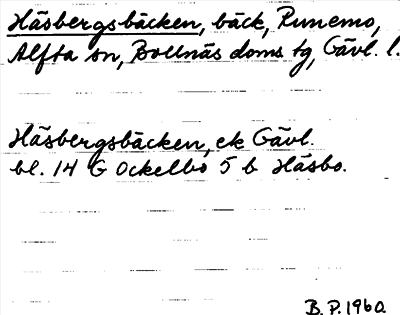 Häsbergsbäcken, bäck, Runemo,
Alfta sn, Bollnäs doms tg, Gävl. l.
Häsbergsbäcken, ek Gävl.
bl. 14 G Ockelbo 5 b Häsbo.
B.P. 1960